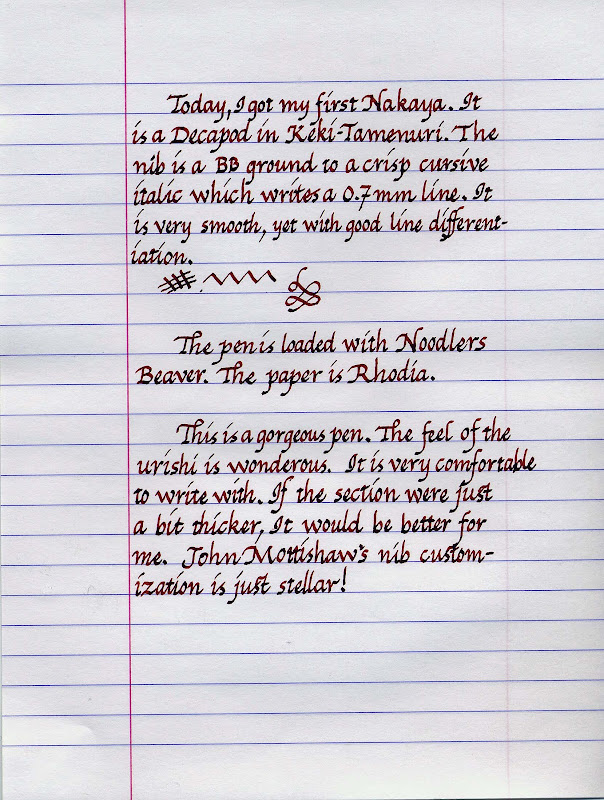 Today, I got my first Nakaya. It
is a Decapod in Keki-Tamenuri. The
nib is a BB ground to a crisp cursive
italic which writes a 0.7mm line. It
is very smooth, yet with good line different-
iation.
The pen is loaded with Noodlers
Beaver. The paper is Rhodia.
This is a gorgeous pen. The feel of the
urishi is wonderous. It is very comfortable
to write with. If the section were just
a bit thicker, It would be better for
me. John Mottishaw's nib custom-
ization is just stellar!